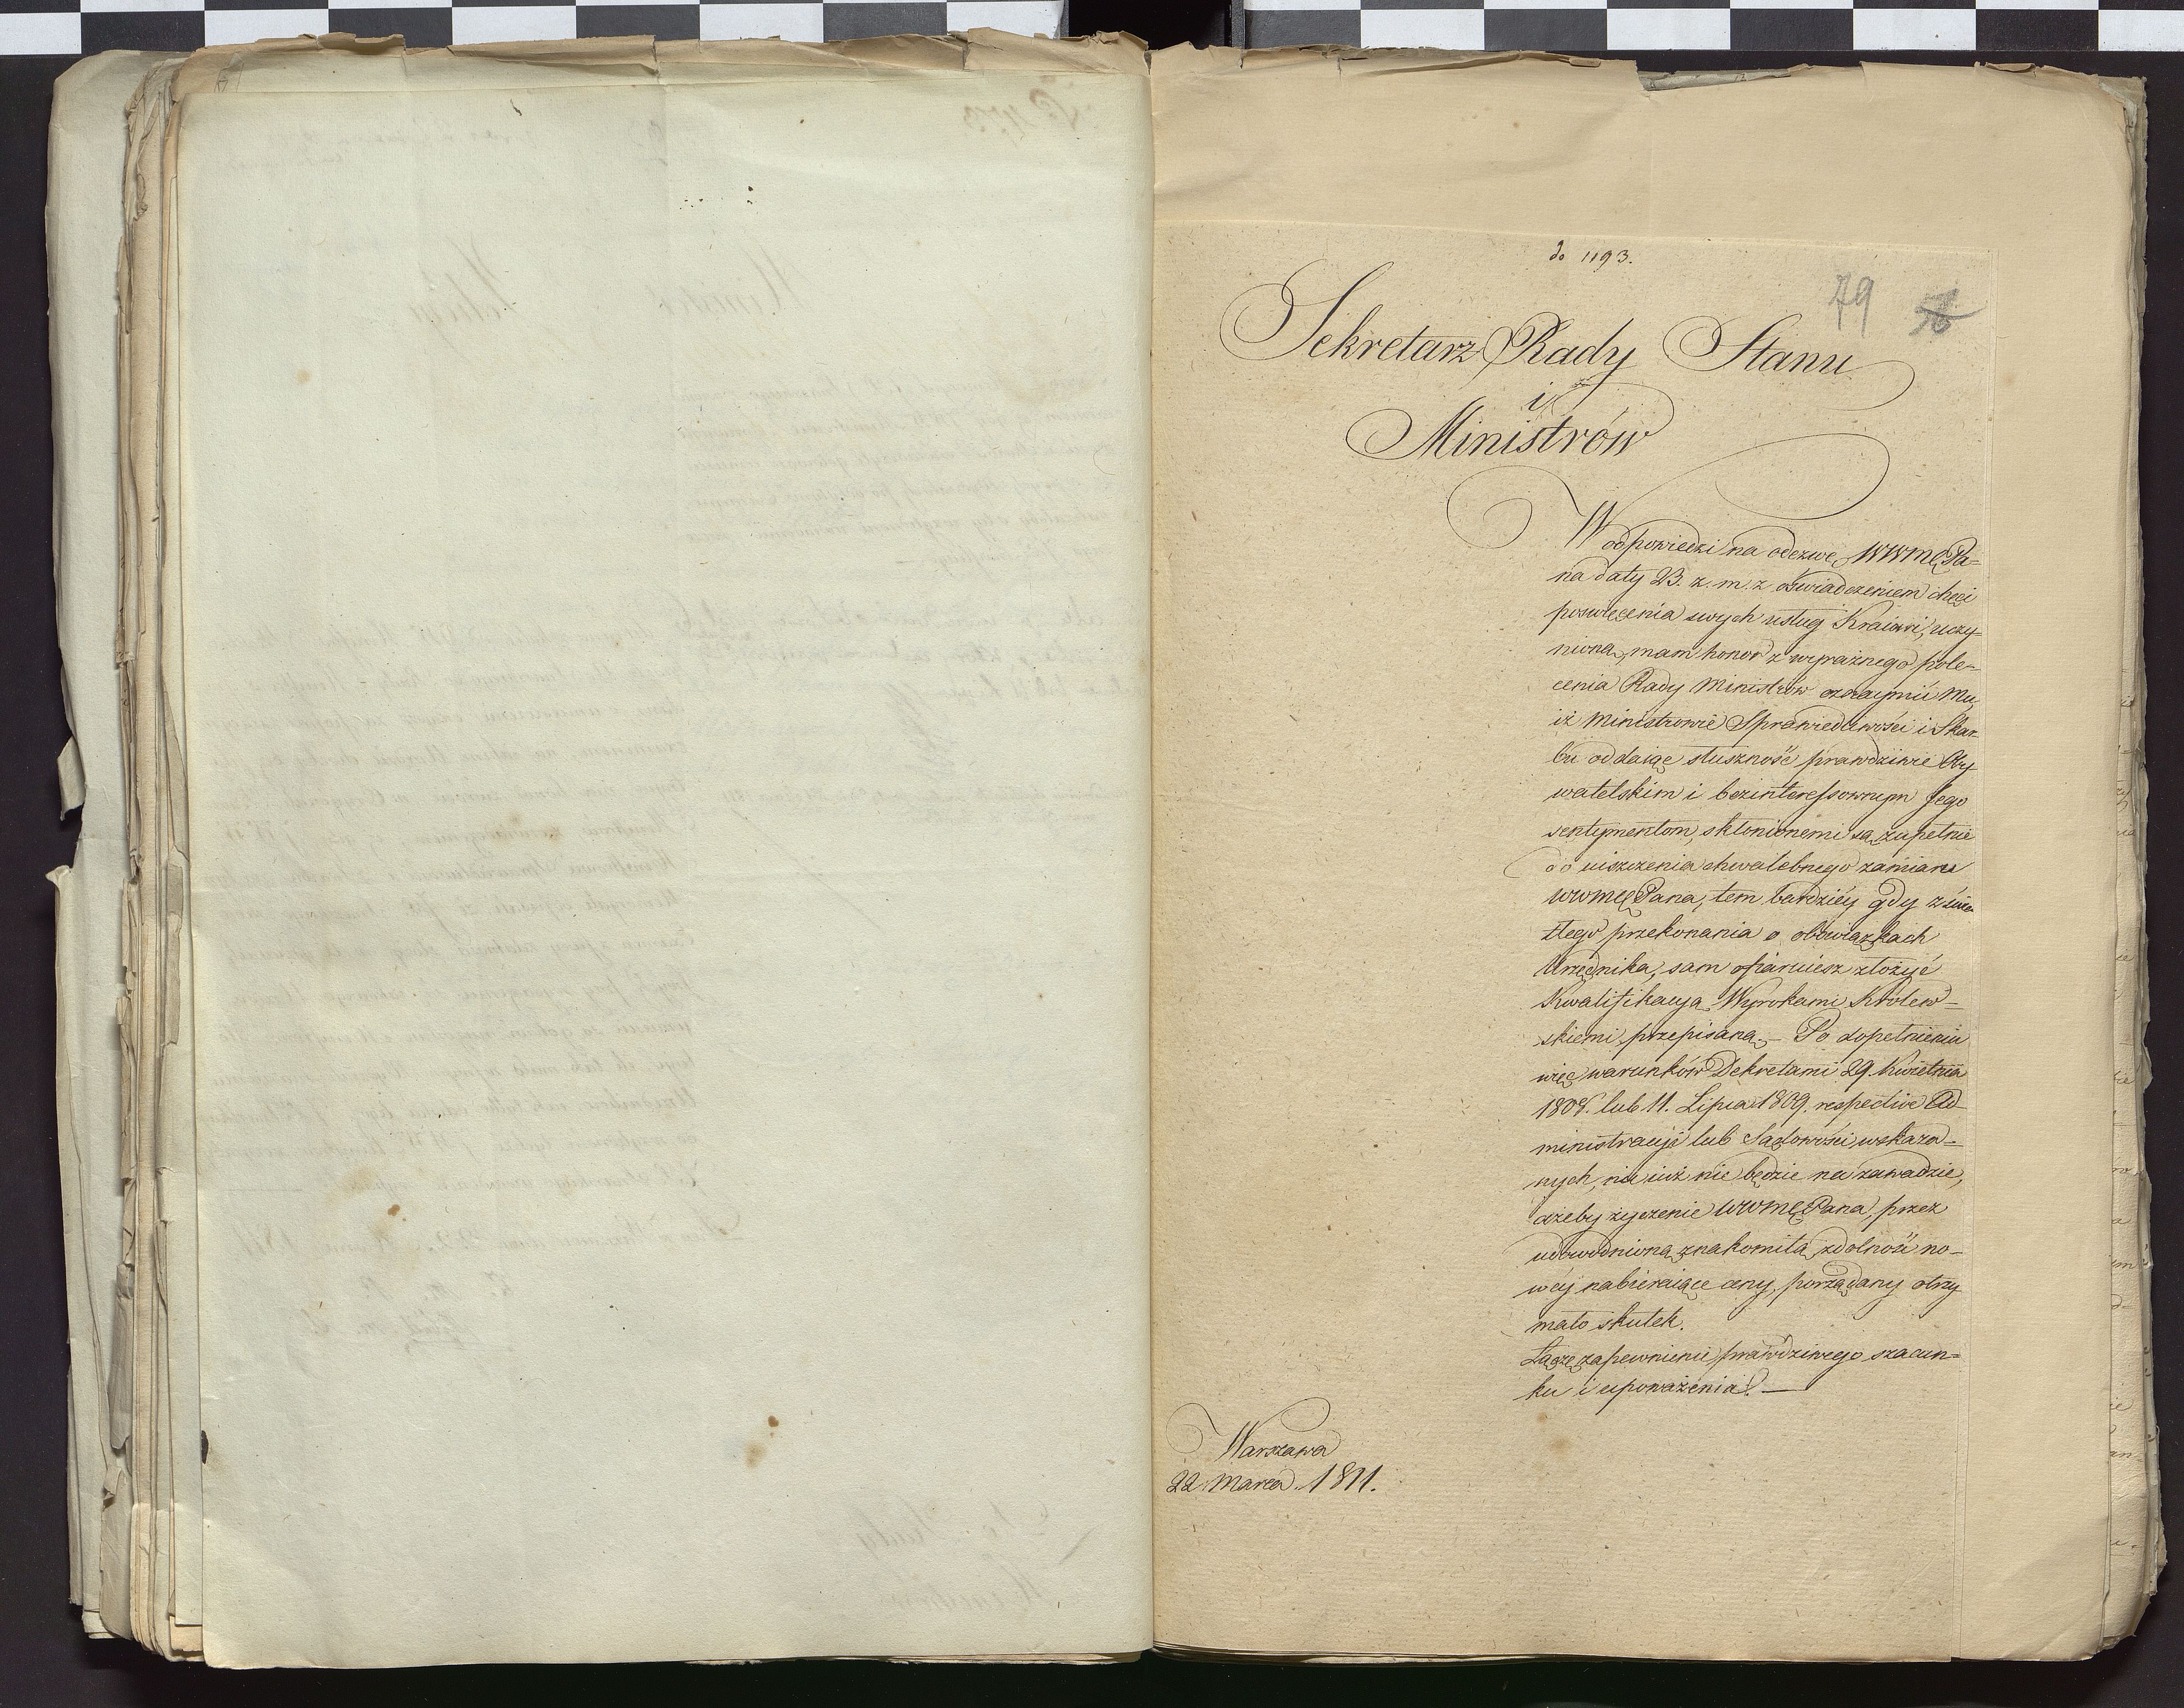 do 1193.
79
Sekretarz Rady Stanu
i
Ministrów
W odpowiedzi na odezwę WWMę Pa=
na daty 23. z. m. z oświadczeniem chęci
poswięcenia swych usług Kraiowi, uczy=
nioną, mam honor z wyraźnego pole=
cenia Rady Ministrów oznaymić Mu,
iż Ministrowie Sprawiedliwości i Skar
bu oddaiąc słuszność prawdziwie Oby
watelskim i bezinteressownym Jego
sentymentom, skłonionemi są zupełnie
do uiszczenia chwalebnego zamiaru
WWMę Pana, tem bardziéy gdy z świa
tłego przekonania o obowiązkach
Urzędnika, sam ofiaruiesz złożyć
Kwalifikacyą Wyrokami Królew=
skiemi przepisaną. – Po dopełnieniu
więc warunków Dekretami 29. Kwietnia
1808. lub 11. Lipca 1809. respective Ad=
ministracyi lub Sądowości wskaza=
nych, nic iuż nie będzie na zawadzie,
ażeby życzenie WWMę Pana, przez
udowodnioną znakomitą zdolność no=
wéy nabieraiące ceny, porządany otrzy
mało skutek.
Łączę zapewnienie prawdziwego szacun=
ku i upoważenia. —
Warszawa
22. Marca. 1811.